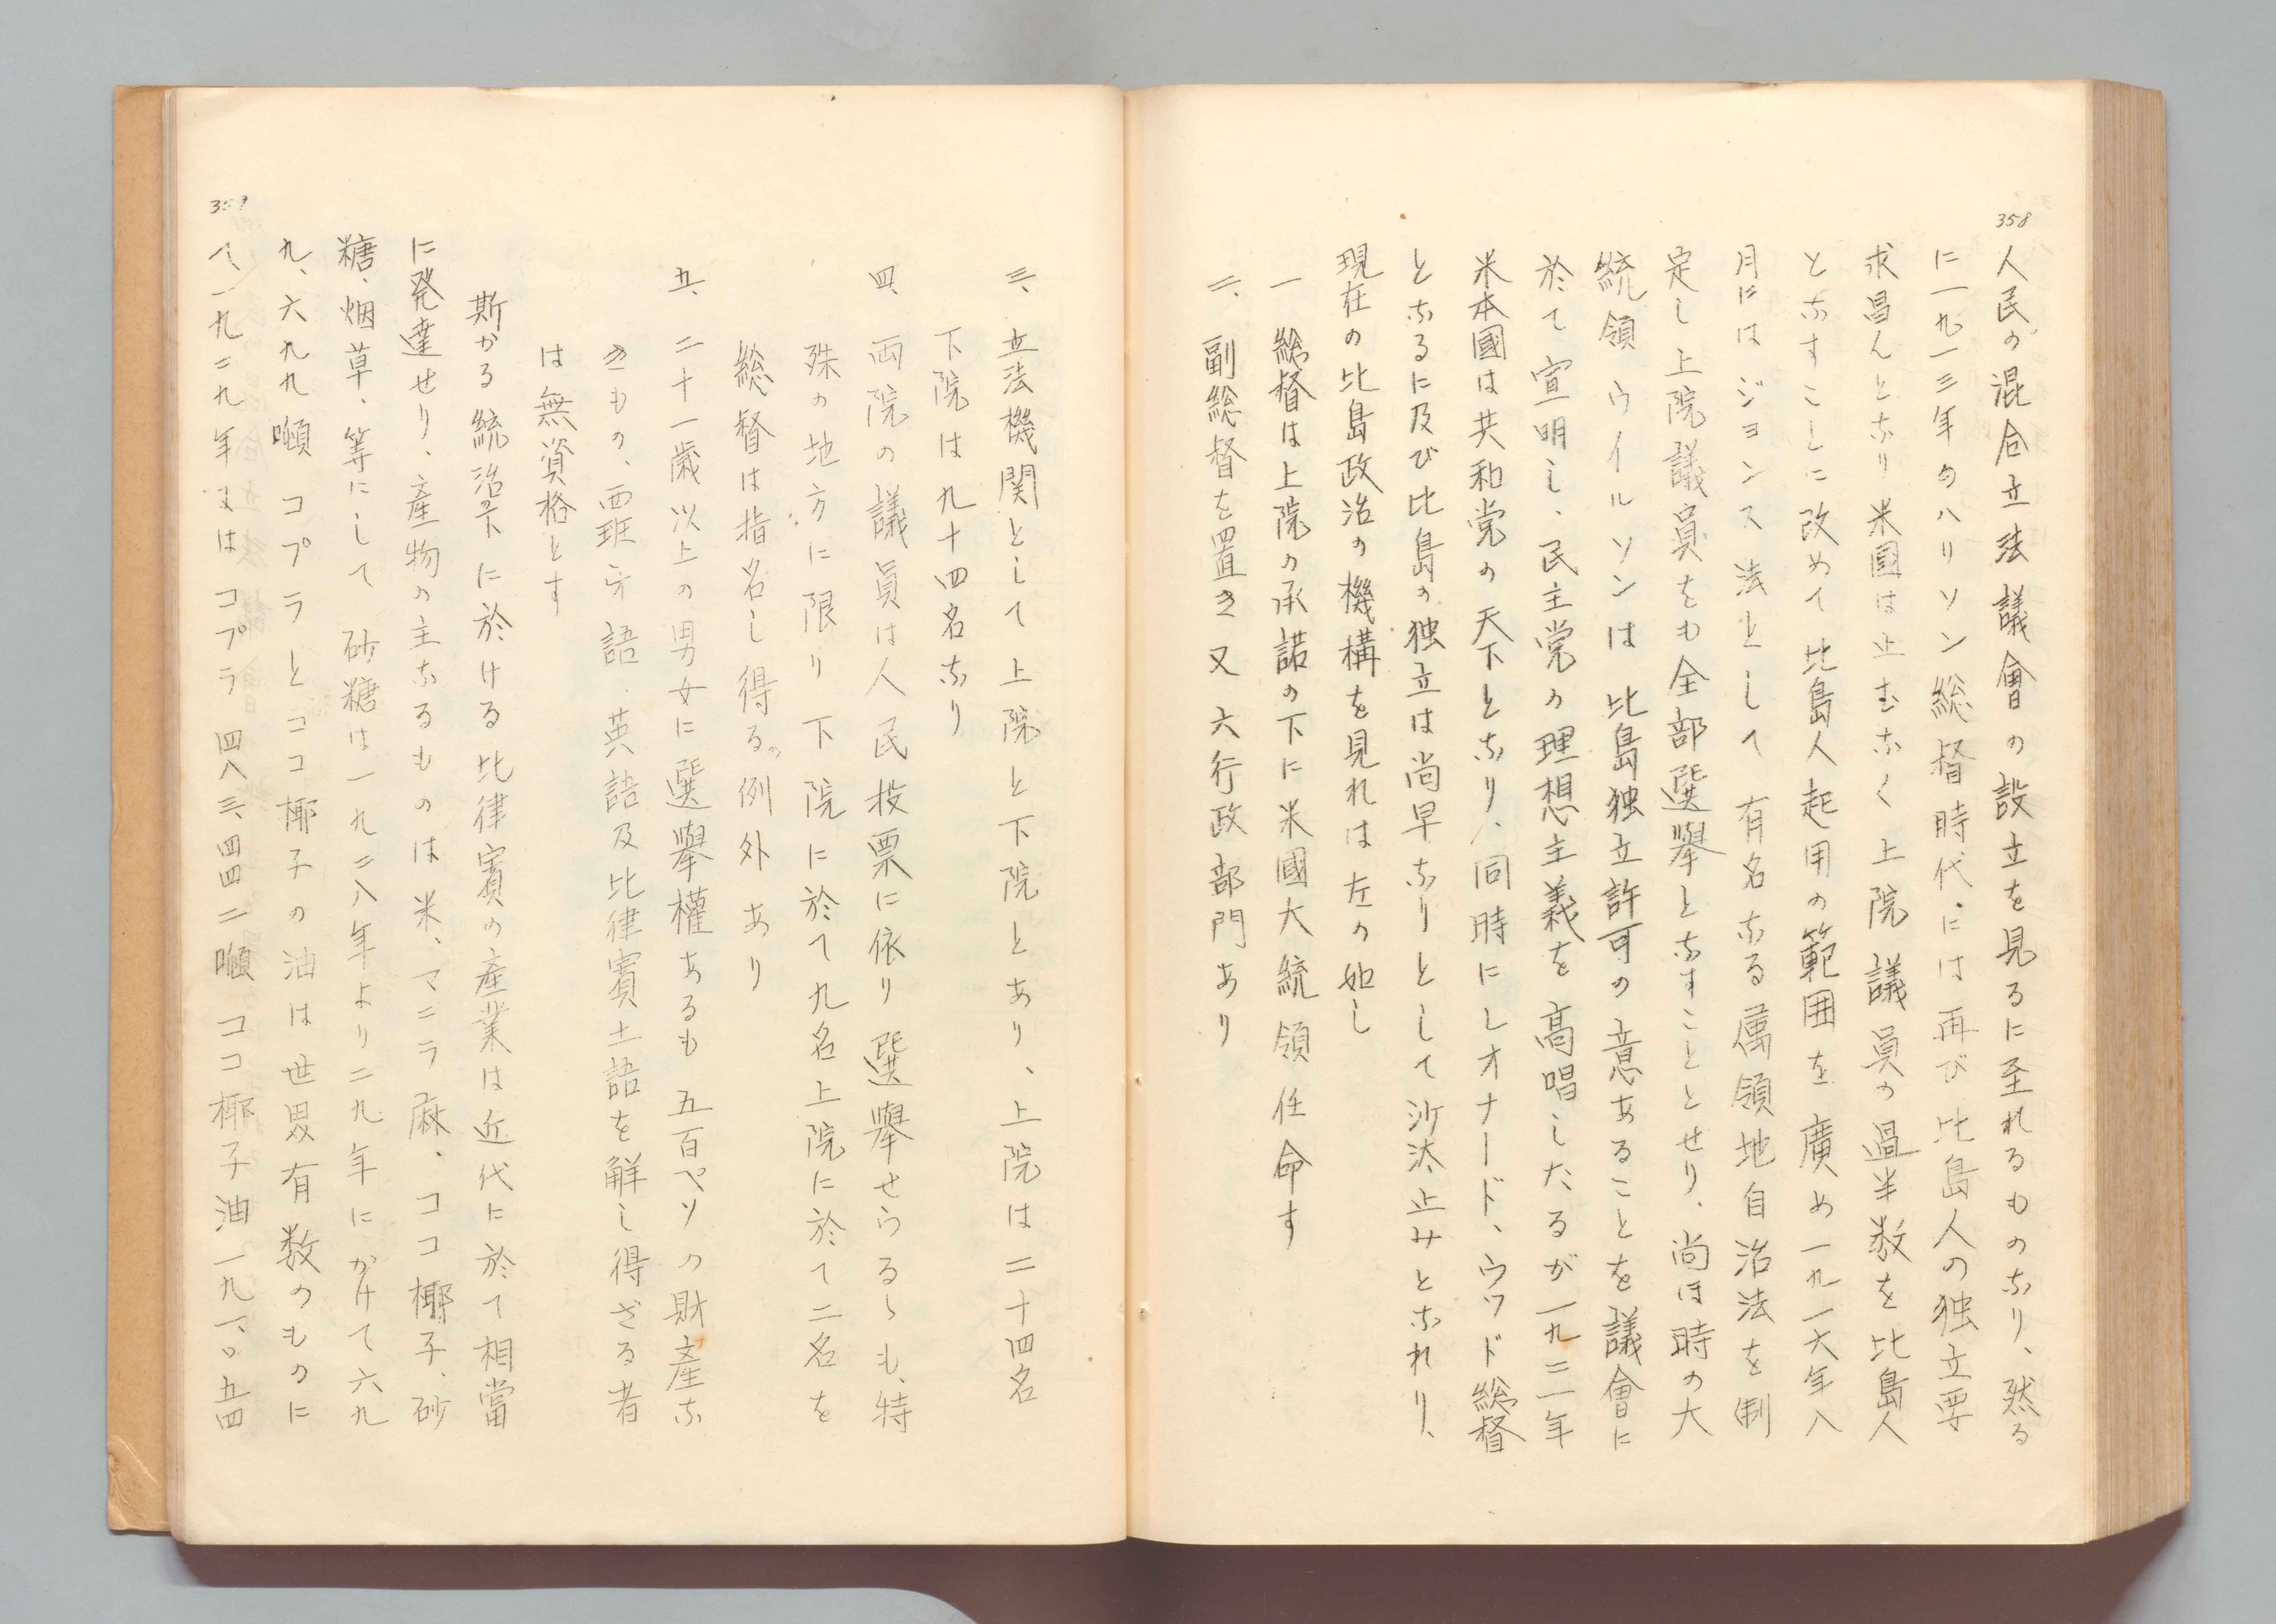 358
人民の混合立法議會の設立を見るに至れるものなり、然る
に一九一三年のハリソン総督時代には再び比島人の独立要
求昌んとなり米國は止むなく上院議員の過半数を比島人
となすことに改めて比島人起用の範囲を廣め一九一六年八
月にはジョンス法として有名なる属領地自治法を制
定し上院議員をも全部選擧となすこととせり、尚ほ時の大
統領ウイルソンは比島独立許可の意あることを議會に
於て宣明し、民主党の理想主義を高唱したるが一九二一年
米本國は共和党の天下となり、同時にレオナード、ウッド総督
となるに及び比島の独立は尚早なりとして沙汰止みとなれり、
現在の比島政治の機構を見れは左の如し
一 総督は上院の承諾の下に米國大統領任命す
二、副総督を置き又六行政部門あり
三、立法機関として上院と下院とあり、上院は二十四名
下院は九十四名なり
四、両院の議員は人民投票に依り選擧せらるゝも、特
殊の地方に限り下院に於て九名上院に於て二名を
総督は指名し得るの例外あり
五、二十一歳以上の男女に選擧權あるも五百ペソの財産な
きもの、西班牙語、英語及比律賓土語を解し得ざる者
は無資格とす
斯かる統治の下に於ける比律賓の産業は近代に於て相當
に発達せり、産物の主なるものは米、マニラ麻、ココ椰子、砂
糖、烟草、等にして砂糖は一九二八年より二九年にかけて六九
九、六九九噸コプラとココ椰子の油は世界有数のものに
一九二九年はコプラ四八三、四四二噸ココ椰子油一九一、〇五四